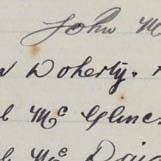 John M
Doherty.
Mc Glinc
Mc Dai